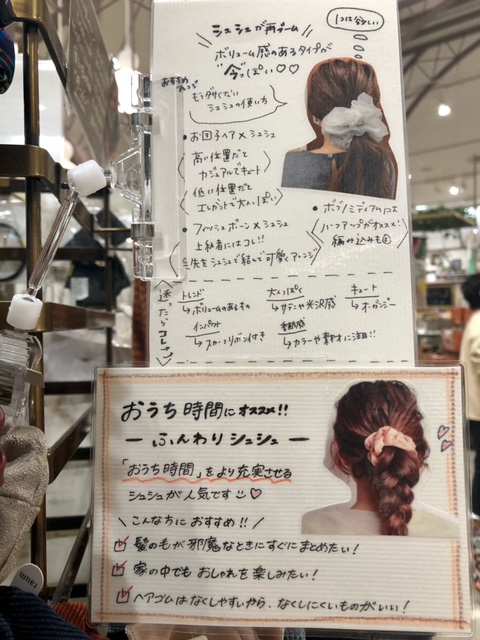 1コは欲しい
シュシュが再ブーム
ボリューム感のあるタイプが
今っぽい♡♡
おすすめ
アレンジ
もうダサくない
シュシュの使い方
• お団子ヘア×シュシュ
高い位置だと
カジュアルでキュート
低い位置だと
エレガントで大人っぽい
• フィッシュボーン×シュシュ
上級者にはコレ!!
毛先をシュシュで結んで可愛くアレンジ
• ボブ/ミディアムには
ハーフアップがオススメ!
編み込みも◎
迷ったらコレ
トレンド
↳ボリュームのあるもの
大人っぽく
↳サテンや光沢感
キュート
↳オーガンジー
インパクト
↳スカーフリボン付き
季節感
↳カラーや素材に注目!!
おうち時間にオススメ!!
ー ふんわりシュシュ ー
「おうち時間」をより充実させる
シュシュが人気です♡
\ こんな方におすすめ!! /
☑ 髪の毛が邪魔なときにすぐにまとめたい!
☑ 家の中でもおしゃれを楽しみたい!
☑ ヘアゴムはなくしやすいから、なくしにくいものがいい!